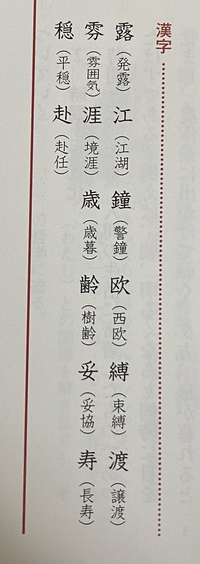 漢字
露（発露）江（江湖）鐘（警鐘）欧（西欧）縛（束縛）渡（譲渡）
雰（雰囲気）涯（境涯）歳（歳暮）齢（樹齢）妥（妥協）寿（長寿）
穏（平穏）赴（赴任）